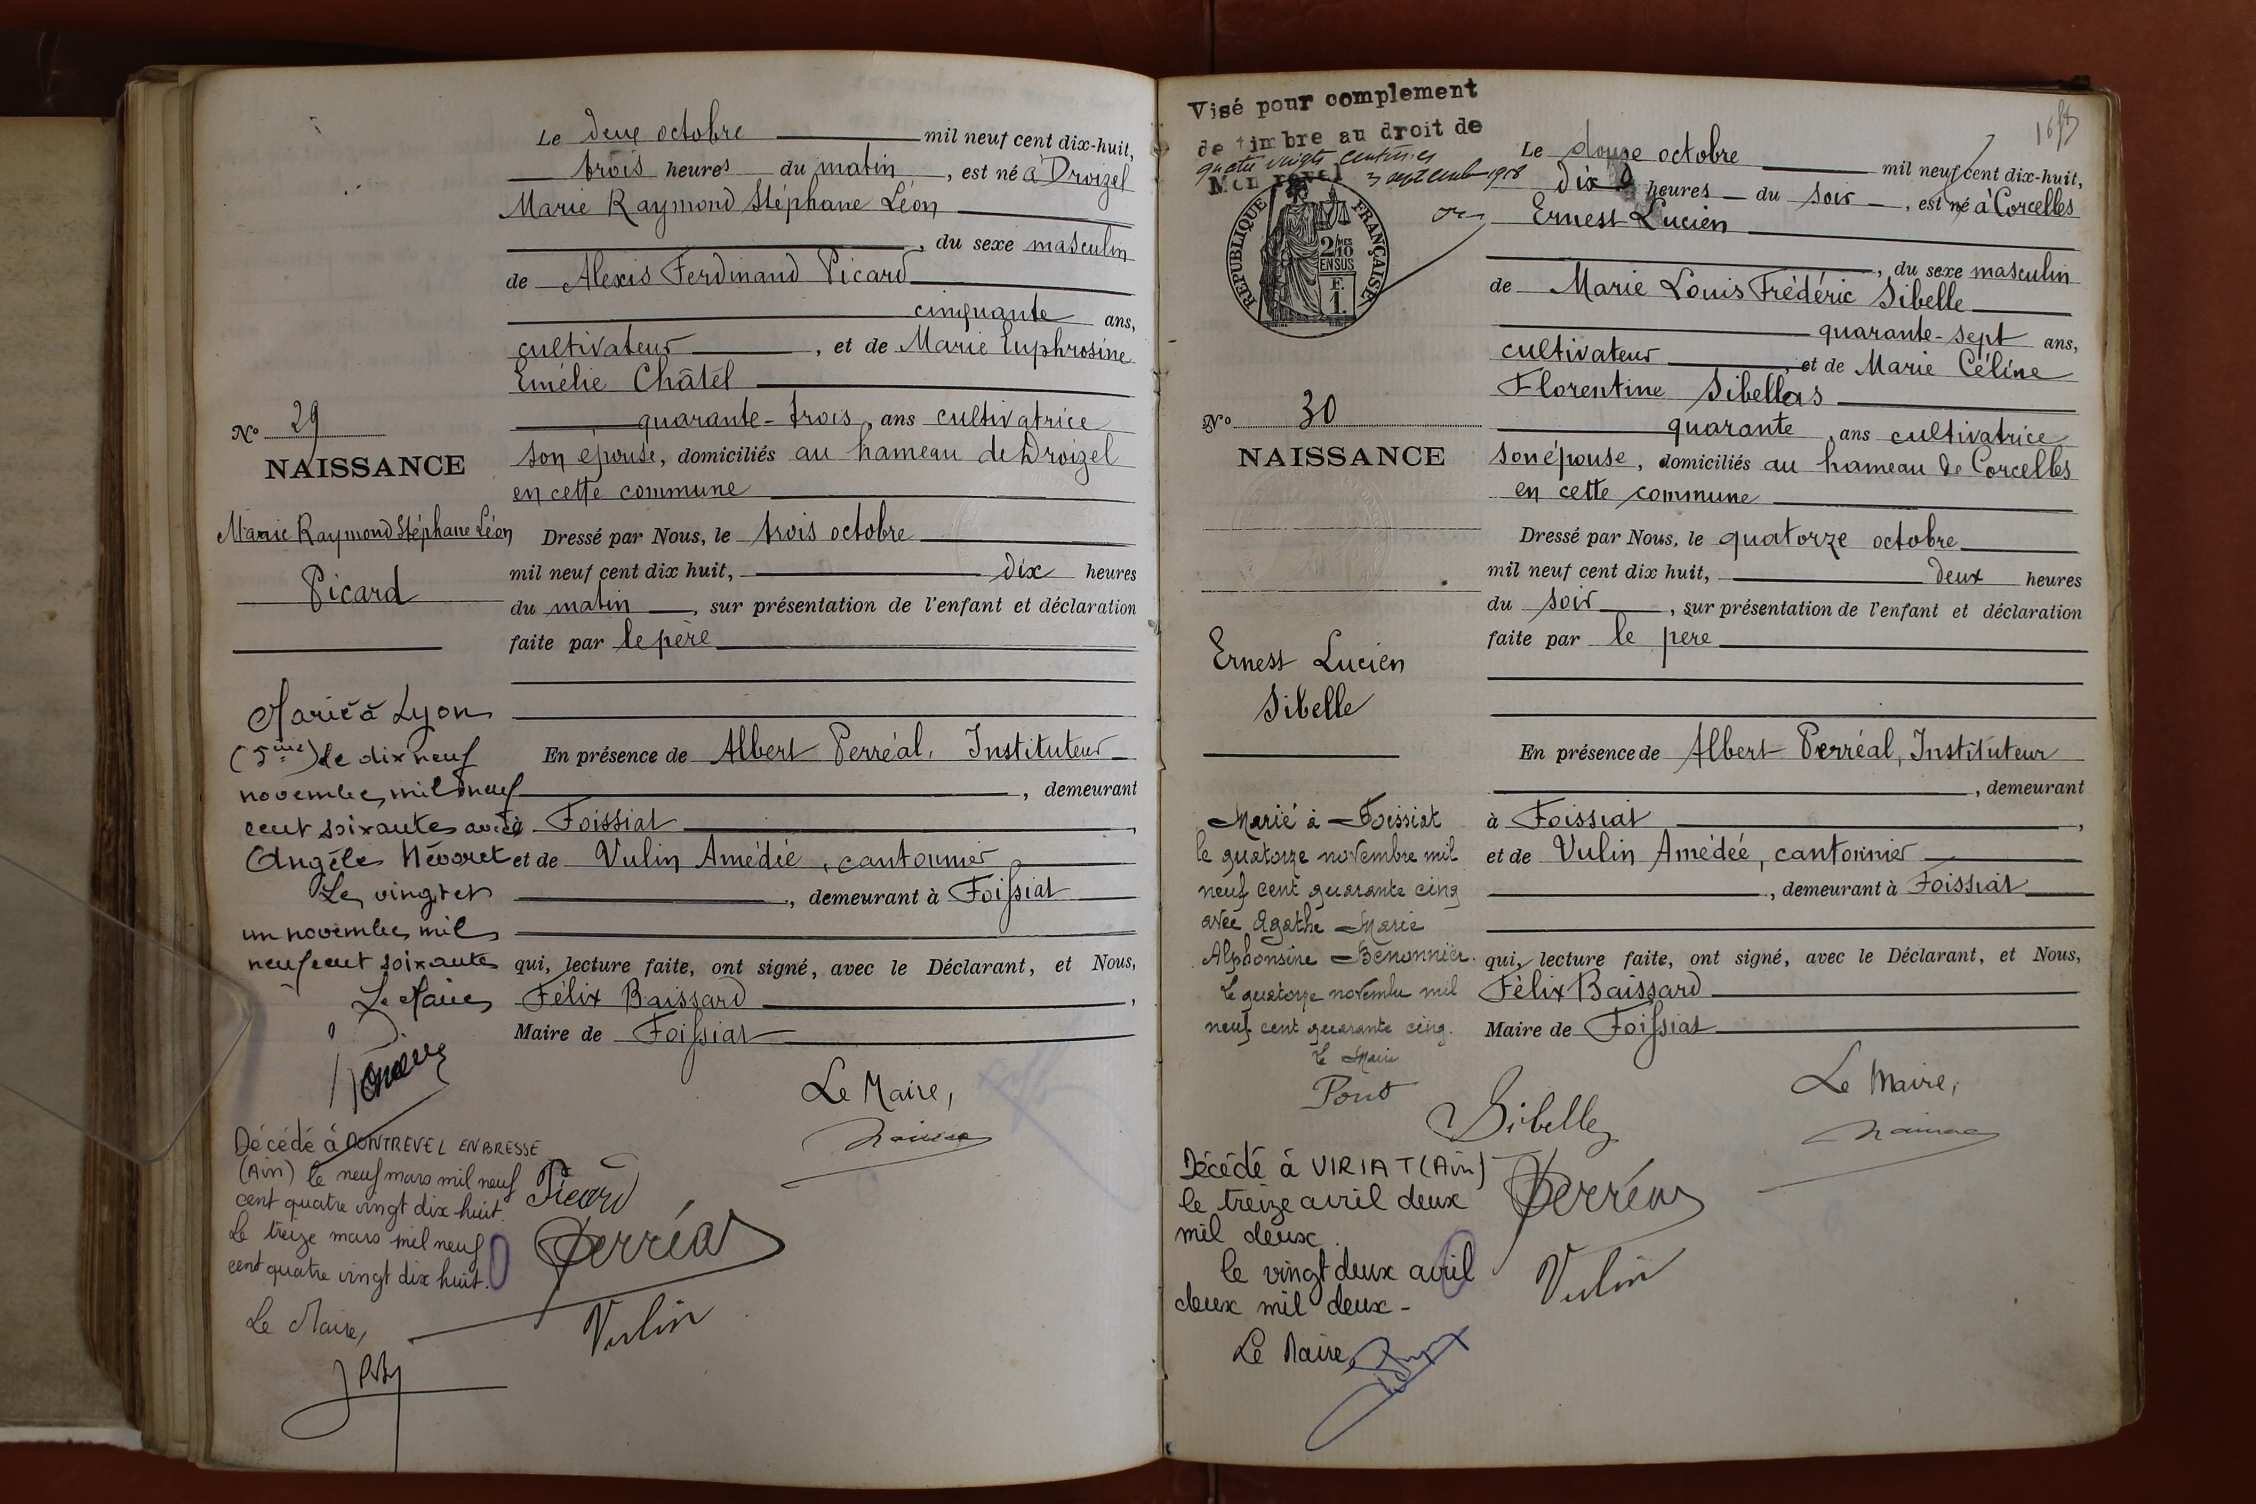 Le deux octobre mil neuf cent dix-huit,
trois heures du matin, est né à Droizel
Marie Raymond Stéphane Léon
, du sexe masculin
de Alexis Ferdinand Picard
cinquante ans,
cultivateur, et de Marie Euphrosine
Emélie Châtel
quarante-trois, ans cultivatrice
son épouse, domiciliés au hameau de Droizel
en cette commune
Nº 29
NAISSANCE
Marie Raymond Stéphane Léon
Picard
Dressé par Nous, le trois octobre
mil neuf cent dix huit, dix heures
du matin, sur présentation de l'enfant et déclaration
faite par le père
En présence de Albert Perréal, Instituteur
, demeurant
à Foissiat,
et de Vulin Amédée, cantonnier
, demeurant à Foissiat
qui, lecture faite, ont signé, avec le Déclarant, et Nous,
Félix Baissard,
Maire de Foissiat
Le Maire,
Picard
Perréal
Vulin
Marié à Lyon
(5ème) le dix neuf
novembre mil neuf
cent soixante avec
Angèle Névoret
Le vingt et
un novembre mil
neuf cent soixante
Le Maire
Décédé à MONTREVEL EN BRESSE
(Ain) le neuf mars mil neuf
cent quatre vingt dix huit.
Le treize mars mil neuf
cent quatre vingt dix huit.
Le Maire,
Visé pour complement
de timbre au droit de
quatre vingts centimes
Montrevel 3 septembre 1918
REPUBLIQUE FRANÇAISE
2/10 MES
EN SUS
F.
1
Le douze octobre mil neuf cent dix-huit,
dix heures du soir, est né à Corcelles
Ernest Lucien
, du sexe masculin
de Marie Louis Frédéric Sibelle
quarante-sept ans,
cultivateur, et de Marie Céline
Florentine Sibellas
quarante, ans cultivatrice
son épouse, domiciliés au hameau de Corcelles
en cette commune
Nº 30
NAISSANCE
Ernest Lucien
Sibelle
Dressé par Nous, le quatorze octobre
mil neuf cent dix huit, deux heures
du soir, sur présentation de l'enfant et déclaration
faite par le pere
En présence de Albert Perréal, Instituteur
, demeurant
à Foissiat,
et de Vulin Amédée, cantonnier
, demeurant à Foissiat
qui, lecture faite, ont signé, avec le Déclarant, et Nous,
Félix Baissard
Maire de Foissiat
Le Maire,
Sibelle
Perréal
Vulin
Marié à Foissiat
le quatorze novembre mil
neuf cent quarante cinq
avec Agathe Marie
Alphonsine Benonnier.
Le quatorze novembre mil
neuf cent quarante cinq.
le Maire
Pont
Décédé à VIRIAT (Ain)
le treize avril deux
mil deux.
le vingt deux avril
deux mil deux -
Le Maire